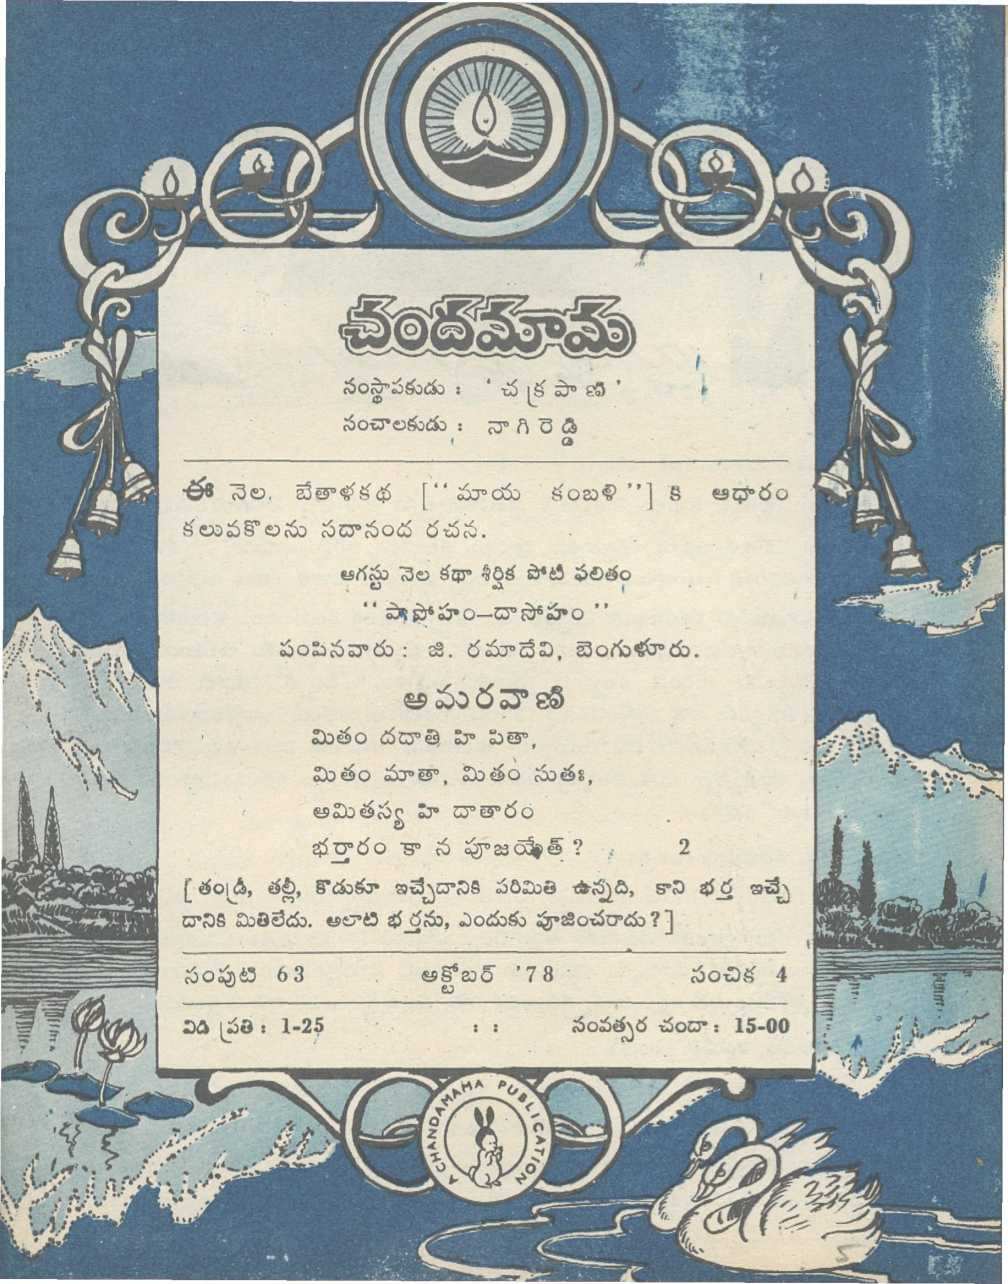 చందమామ
సంస్థాపకుడు : ' చ క్ర పా ణి '
సంచాలకుడు : నా గి రె డ్డి
ఈ నెల. బేతాళకథ [“ మాయ కంబళి ”] కి ఆధారం
కలువకొలను సదానంద రచన.
ఆగస్టు నెల కథా శీర్షిక పోటి ఫలితం
“ పాపోహం—దాసోహం ”
పంపినవారు : జి. రమాదేవి, బెంగుళూరు.
అ మ ర వా ణి
మితం దదాతి హి పితా,
మితం మాతా, మితం సుతః,
అమితస్య హి దాతారం
భర్తారం కా న పూజయేత్ ? 2
[ తండ్రీ, తల్లీ, కొడుకూ ఇచ్చేదానికి పరిమితి ఉన్నది, కాని భర్త ఇచ్చే
దానికి మితిలేదు. అలాటి భర్తను, ఎందుకు పూజించరాదు ? ]
సంపుటి 63 అక్టోబర్ '78 సంచిక 4
విడి ప్రతి : 1-25 : : సంవత్సర చందా : 15-00
A CHANDAMAMA PUBLICATION